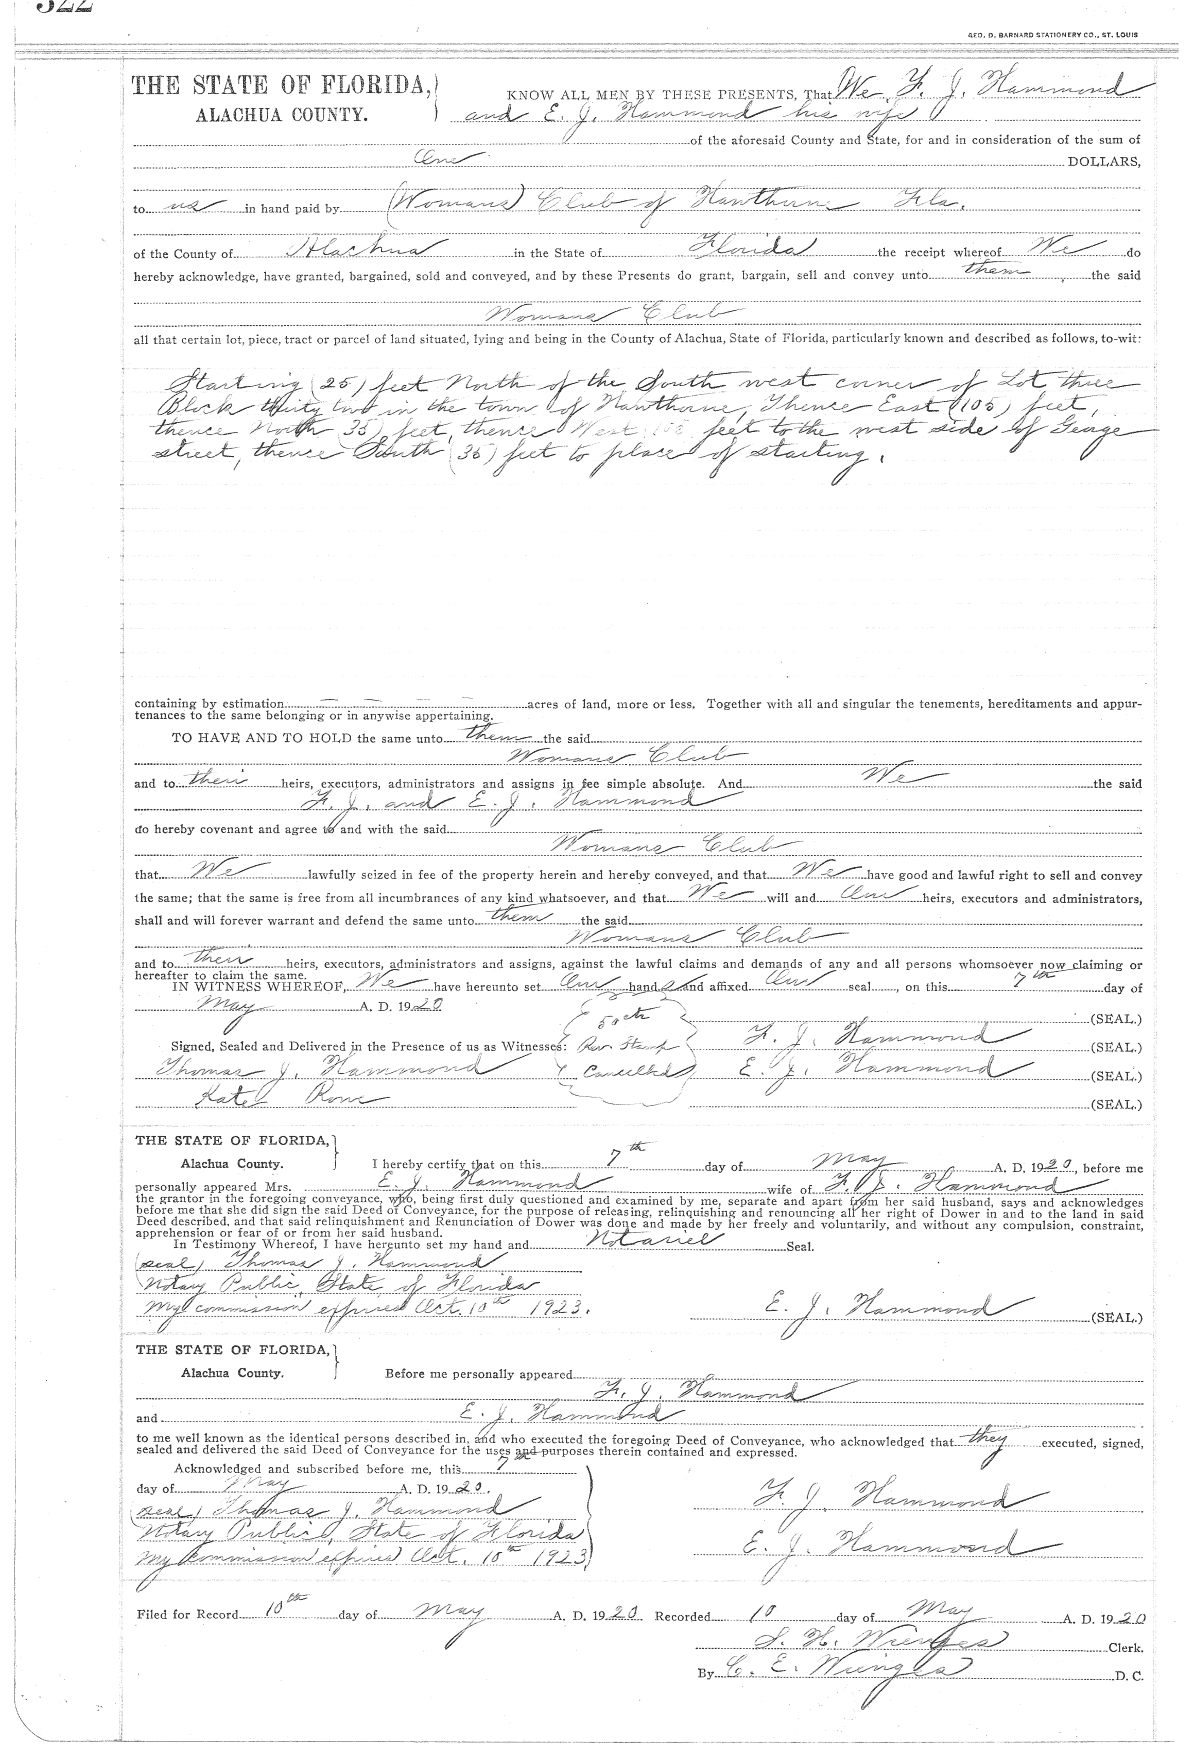 322
GEO. D. BARNARD STATIONERY CO., ST. LOUIS
THE STATE OF FLORIDA,
ALACHUA COUNTY.
KNOW ALL MEN BY THESE PRESENTS, That We, F. J. Hammond
and E. J. Hammond his wife
of the aforesaid County and State, for and in consideration of the sum of
One DOLLARS,
to us in hand paid by (Womans) Club of Hawthorne Fla.
of the County of Alachua in the State of Florida the receipt whereof We do
hereby acknowledge, have granted, bargained, sold and conveyed, and by these Presents do grant, bargain, sell and convey unto them, the said
Womans Club
all that certain lot, piece, tract or parcel of land situated, lying and being in the County of Alachua, State of Florida, particularly known and described as follows, to-wit:
Starting (25) feet North of the South west corner of Lot three
Block thirty two in the town of Hawthorne, Thence East (105) feet,
thence North (35) feet, thence West 105 feet to the west side of George
street, thence South (35) feet to place of starting.
containing by estimation acres of land, more or less. Together with all and singular the tenements, hereditaments and appur-
tenances to the same belonging or in anywise appertaining.
TO HAVE AND TO HOLD the same unto them the said
Womans Club
and to their heirs, executors, administrators and assigns in fee simple absolute. And We the said
F. J. and E. J. Hammond
do hereby covenant and agree to and with the said
Womans Club
that We lawfully seized in fee of the property herein and hereby conveyed, and that We have good and lawful right to sell and convey
the same; that the same is free from all incumbrances of any kind whatsoever, and that We will and Our heirs, executors and administrators,
shall and will forever warrant and defend the same unto them the said
Womans Club
and to their heirs, executors, administrators and assigns, against the lawful claims and demands of any and all persons whomsoever now claiming or
hereafter to claim the same.
IN WITNESS WHEREOF, We have hereunto set Our hands and affixed Our seal, on this 7th day of
May A. D. 1920
50cts (SEAL.)
Signed, Sealed and Delivered in the Presence of us as Witnesses: Rev. Stamp F. J. Hammond (SEAL.)
Thomas J. Hammond Cancelled E. J. Hammond (SEAL.)
Kate Rowe (SEAL.)
THE STATE OF FLORIDA,
Alachua County.
I hereby certify that on this 7th day of May A. D. 1920, before me
personally appeared Mrs. E. J. Hammond wife of F. J. Hammond
the grantor in the foregoing conveyance, who, being first duly questioned and examined by me, separate and apart from her said husband, says and acknowledges
before me that she did sign the said Deed of Conveyance, for the purpose of releasing, relinquishing and renouncing all her right of Dower in and to the land in said
Deed described, and that said relinquishment and Renunciation of Dower was done and made by her freely and voluntarily, and without any compulsion, constraint,
apprehension or fear of or from her said husband.
In Testimony Whereof, I have hereunto set my hand and Notariel Seal.
(seal) Thomas J. Hammond
Notary Public, State of Florida
My commission expires Oct. 10th 1923. E. J. Hammond (SEAL.)
THE STATE OF FLORIDA,
Alachua County.
Before me personally appeared
F. J. Hammond
and E. J. Hammond
to me well known as the identical persons described in, and who executed the foregoing Deed of Conveyance, who acknowledged that they executed, signed,
sealed and delivered the said Deed of Conveyance for the uses and purposes therein contained and expressed.
Acknowledged and subscribed before me, this 7th
day of May A. D. 1920.
(seal) Thomas J. Hammond F. J. Hammond
Notary Public, State of Florida
My commission expires Oct. 10th 1923 E. J. Hammond
Filed for Record 10th day of May A. D. 1920 Recorded 10 day of May A. D. 1920
S. H. Wienges Clerk.
By C. E. Wienges D. C.